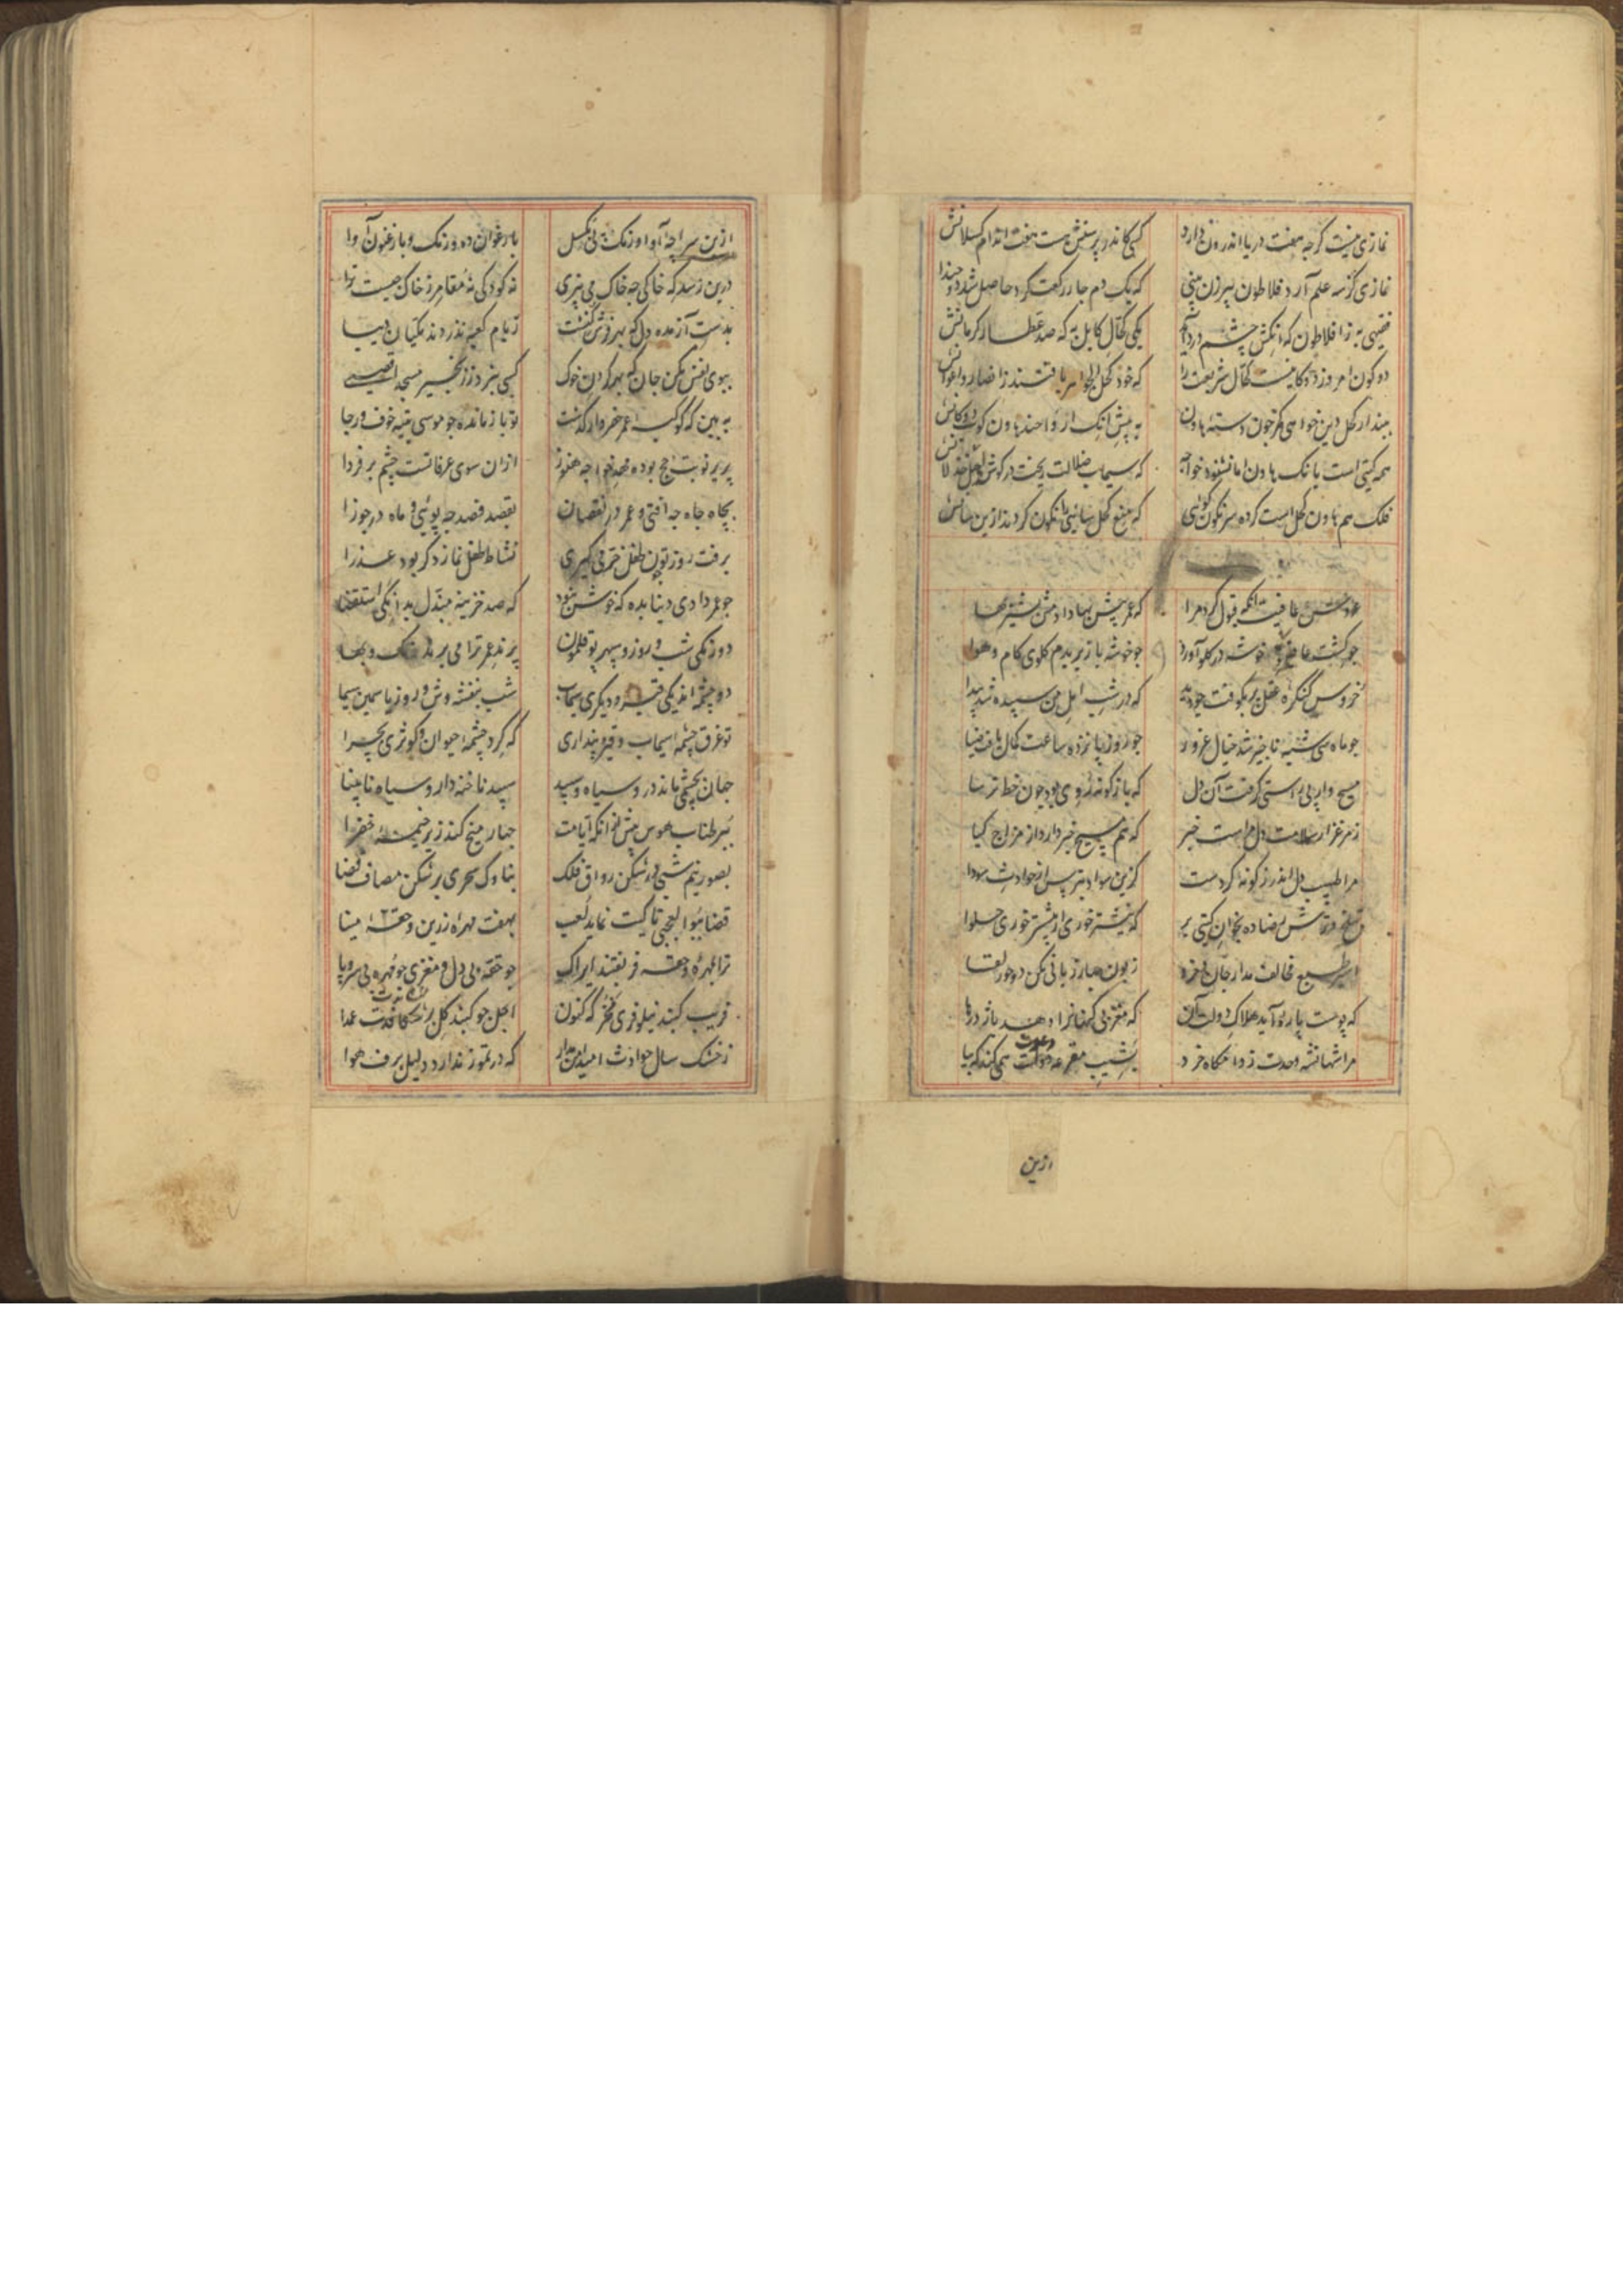 نمازی نیست گرچه هفت دریا اندرون دارد کسی کاندر پرستش هست هفت اندام کسلانش
نمازی کز سه علم آرد فلاطون پیرزن بینی که یک دم چار رکعت کرد حاصل شد دو چندانش
فقیهی به ز افلاطون که آنکش چشم درد آید یکی کحال کابل به که صد عطار کرمانش
دو کون امروز دکانیست کحال شریعت را که خود کحل الجواهر یافتند انصار و اعوانش
ببند ار کحل دین خواهی کمر چون دسته هاون به پیش آنک ارواحند هاون کوب دکانش
همه گیتی است بانک هاون اما نشنود خواجه که سیماب ضلالت ریخت در گوش اهل خذلانش
فلک هم هاون کحل است کرده سرنگون گوئی که منع کحل سائی را نگون کردند ازین سانش
عروس عافیت آنگه قبول کرد مرا که عمر پیش بها دادمش بشیربها
چو کشت عافیتم خوشه در گلو آورد چو خوشه باز بریدم گلوی کام و هوا
خروس کنگره عقل پر بکوفت چو دید که در شب امل من سپیده شد پیدا
چو ماه سی شبه ناچیز شد خیال غرور چو روز پانزده ساعت کمال یافت ضیا
مسیح وار پی راستی گرفت آن دل که باژگونه روی بود چون خط ترسا
ز مرغزار سلامت دل مراست خبر که هم مسیح خبر دارد از مزاج گیا
مرا طبیب دل اندرز گونه کردست کزین سواد بترس از حوادث سودا
بتلخ و ترش رضا ده بخوان گیتی بر که نیشتر خوری ار بیشتر خوری حلوا
اسیر طبع مخالف مدار جان و خرد زبون چار زبانی مکن دو حور لقا
که پوست پاره آید هلاک دولت آن که مغز بی گنهانرا دهد باژدرها
مرا شهانشه وحدت ز داغگاه خرد بشیب مقرعه دعوت همی کند که بیا
ازین
ازین سراچه آوا و رنگ پی بگسل بارغوان ده رنگ و بارغنون آوا
درین رصد که خاکی چه خاک می بیزی نه کودکی نه مقامر ز خاک چیست ترا
بدست آز مده دل که بهر فرش کنشت ز بام کعبه ندزدند مکیان دیبا
ببوی نفس مکن جان که بهر گردن خوک کسی نبرد زنجیر مسجد اقصی
به بین که کوکبه عمر خضروار گذشت تو باز مانده چو موسی بتیه خوف و رجا
پریر نوبت حج بود و مهد خواجه هنوز ازان سوی عرفاتست چشم بر فردا
بچاه جاه چه افتی و عمر در نقصان بقصد فصد چه پوئی و ماه در جوزا
برفت روز تو چون طفل خرمی گیری نشاط طفل نماز دگر بود عذرا
چو عمر دادی دنیا بده که خوش نبود که صد خزینه مبذل بدانکی استقصا
دو رنگی شب و روز و سپهر بوقلمون پرند عمر ترا می برند رنگ و بها
دو چشمه اند یکی قیر و دیگری سیماب شب بنفشه وش و روز یاسمین سیما
تو غرق چشمه سیماب و قیر و پنداری که گرد چشمه حیوان و کوثری بچرا
جهان بچشمی ماند درو سیاه و سپید سپید ناخنه دار و سیاه نابینا
ببر طناب هوس پیش ازانکه ایامت چهار میخ کند زیر خیمه خضرا
بصور نیم شبی در شکن رواق فلک بناوک سحری بر شکن مصاف قضا
قضا ببوالعجبی تا کیت نماید لعب بهفت مهره زرین و حقه مینا
ترا بمهره و حقه فریفتند ایراک چو حقه بی دل و مغزی چو مهره بی سر و پا
فریب گنبد نیلوفری مخور که کنون اجل چو گنبد گل بر شکافدت عمدا
ز خشک سال حوادث امید امن مدار که در تموز ندارد دلیل برف هوا